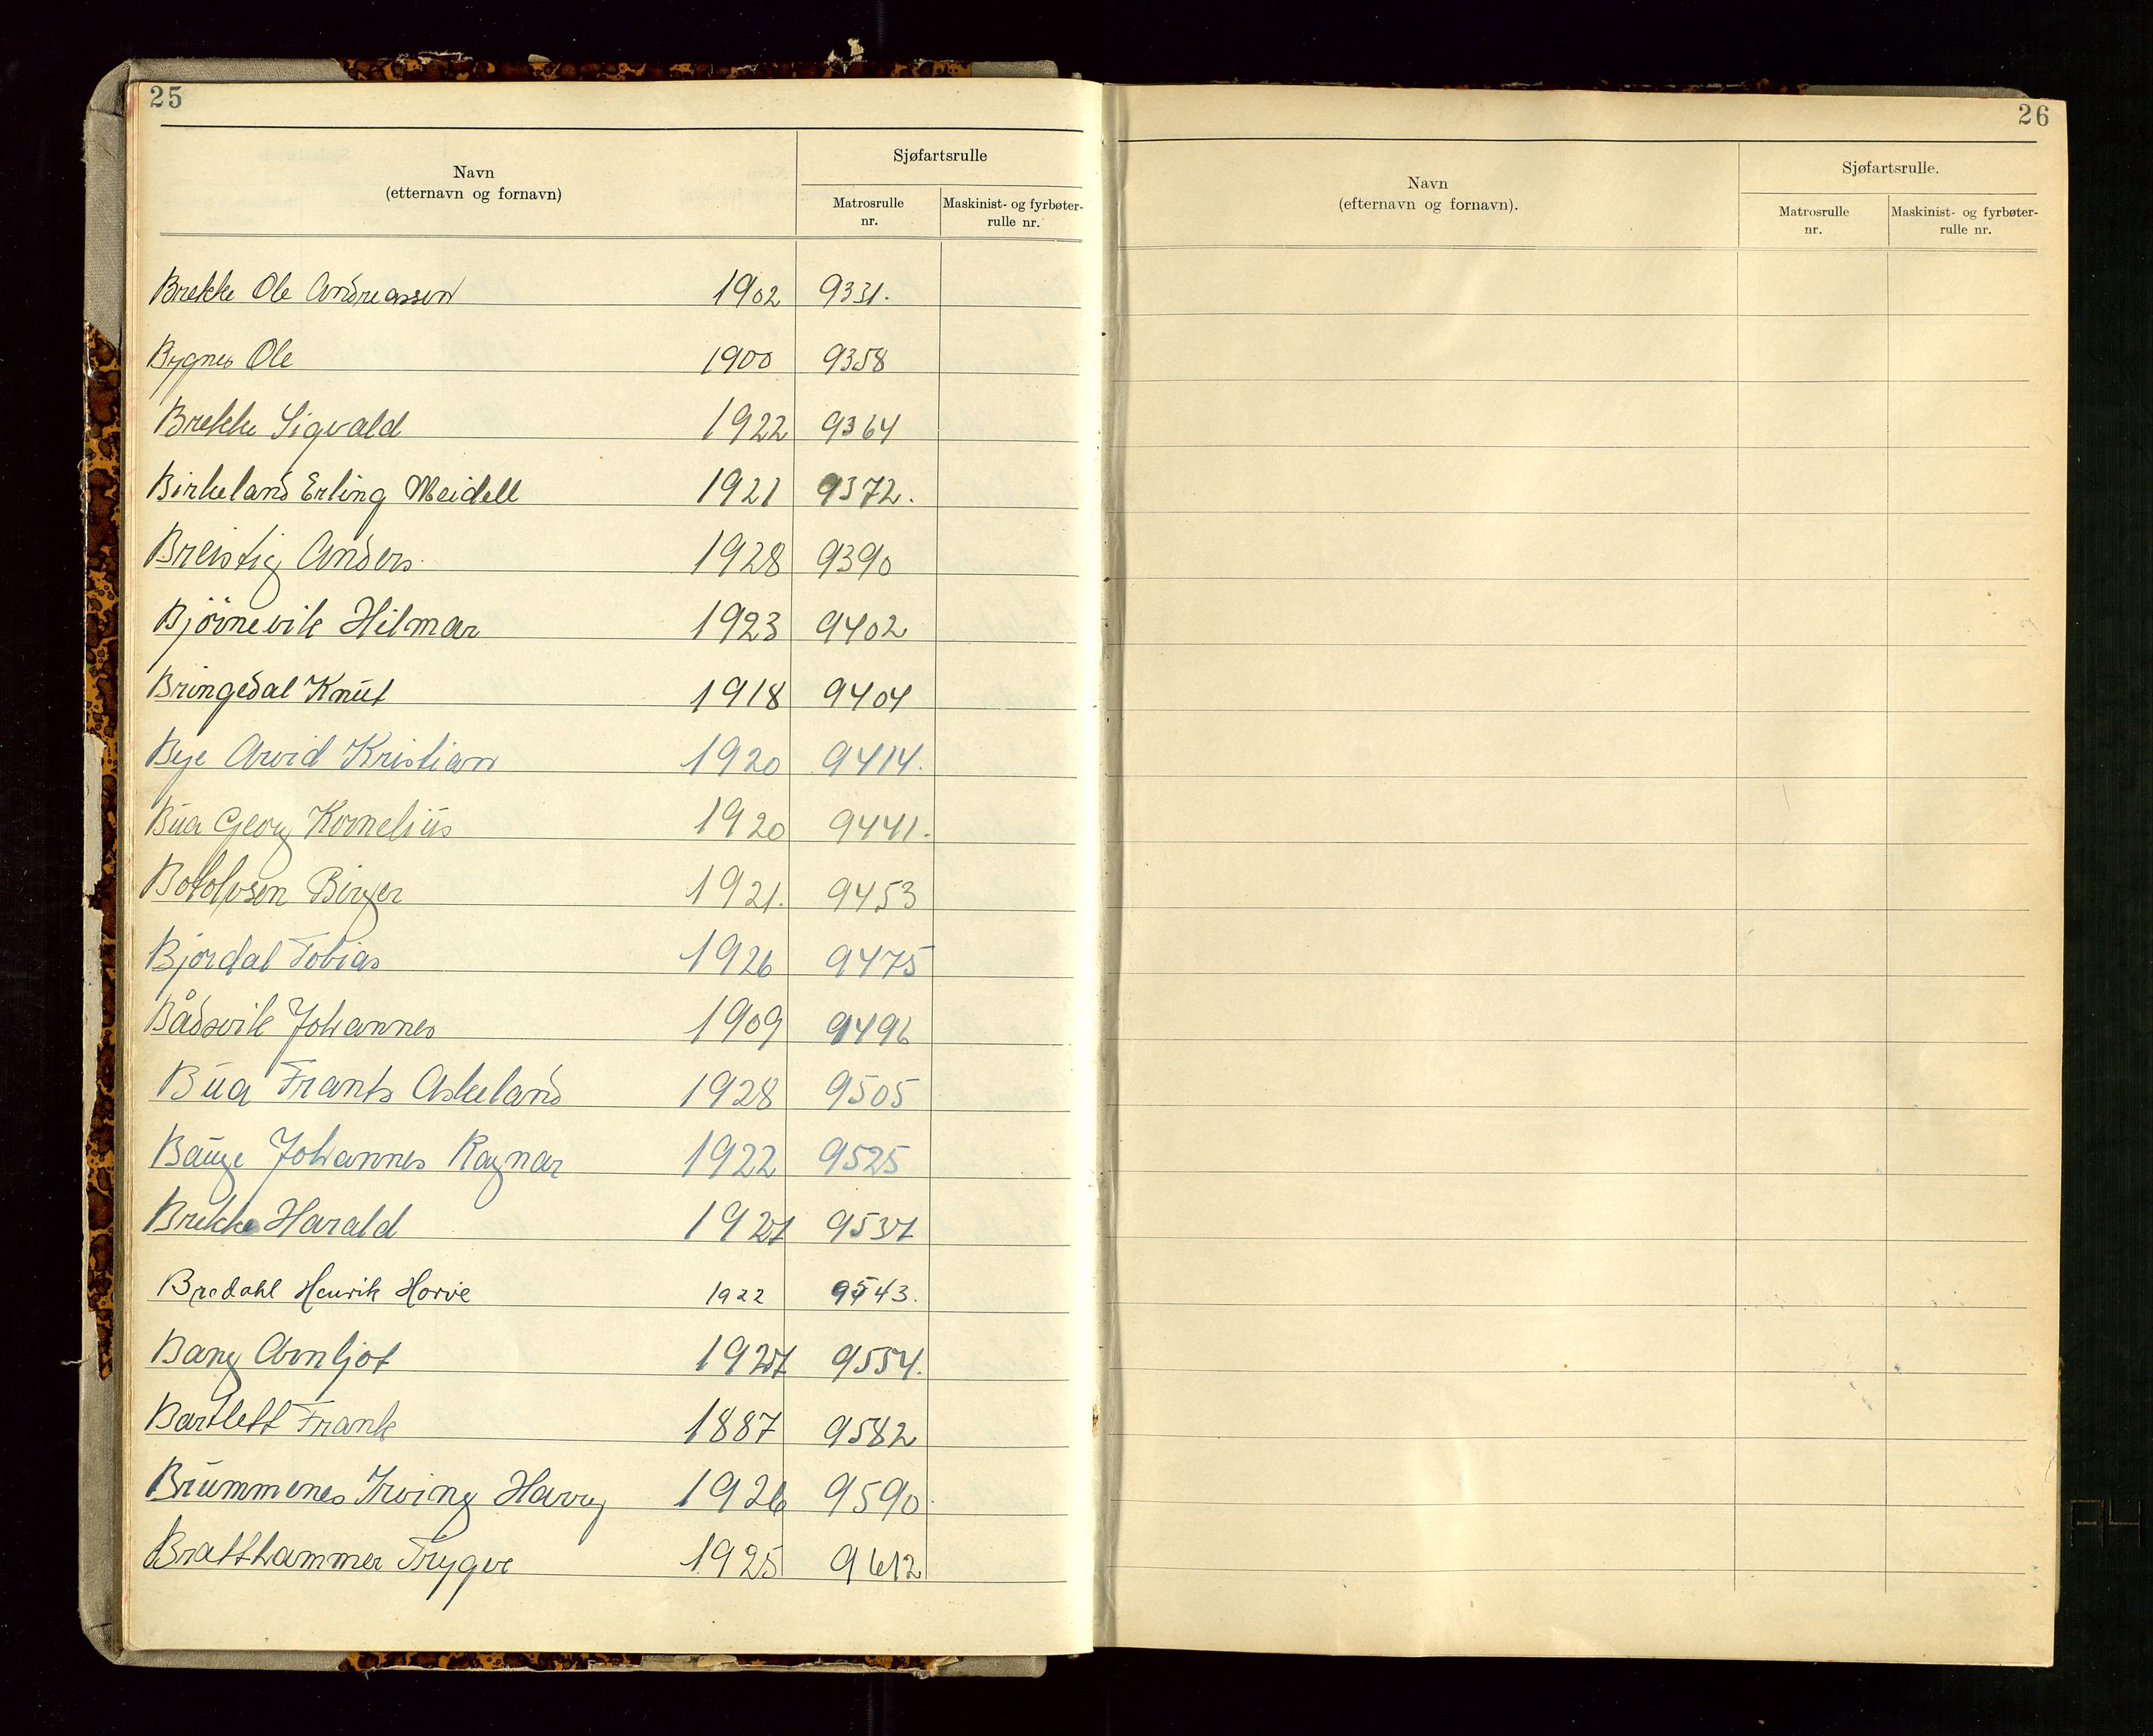 25
Navn
(etternavn og fornavn)
Sjøfartsrulle
Matrosrulle nr.
Maskinist- og fyrbøter-rulle nr.
Brekke Ole Andreassen 1902 9331.
Bygnes Ole 1900 9358
Brekke Sigvald 1922 9364
Birkeland Erling Meidell 1921 9372.
Breistig Anders 1928 9390
Bjørnevik Hilmar 1923 9402
Bringedal Knut 1918 9404
Bye Arvid Kristian 1920 9414.
Bua Georg Kornelius 1920 9441.
Botolvsen Birger 1921. 9453
Bjordal Tobias 1926 9475
Bådsvik Johannes 1909 9496
Bua Frants Askeland 1928 9505
Bauge Johannes Ragnar 1922 9525
Brekke Harald 1927 9537
Bredahl Henrik Horvie 1922 9543.
Bang Arnljot 1927 9554.
Bartlett Frank 1887 9582
Brummenes Irving Harry 1926 9590
Bratthammer Trygve 1925 9612
26
Navn
(efternavn og fornavn).
Sjøfartsrulle.
Matrosrulle nr.
Maskinist- og fyrbøter-rulle nr.